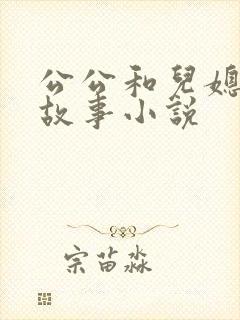 公公和兒媳
故事小説
宗苗淼